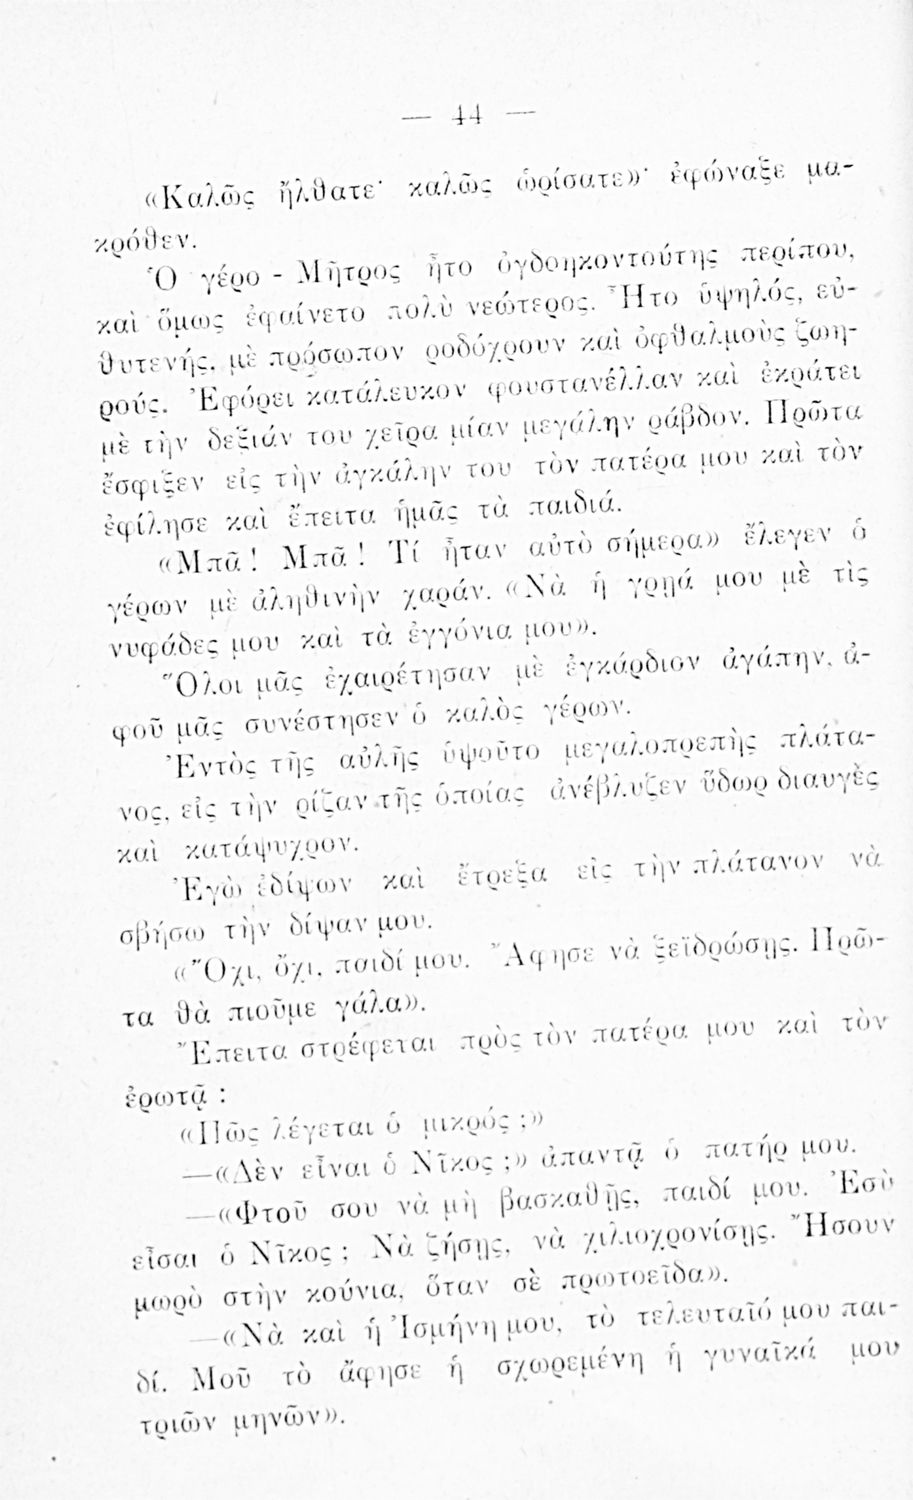 — 44 —
«Καλῶς ἤλθατε· καλῶς ὡρίσατε»· ἐφώναξε μα-
κρόθεν.
Ὁ γέρο - Μῆτρος ἦτο ὀγδοηκοντούτης περίπου,
καὶ ὅμως ἐφαίνετο πολὺ νεώτερος. Ἦτο ὑψηλός, εὐ-
θυτενής, μὲ πρόσωπον ροδόχρουν καὶ ὀφθαλμοὺς ζωη-
ρούς. Ἐφόρει κατάλευκον φουστανέλλαν καὶ ἐκράτει
μὲ τὴν δεξιάν του χεῖρα μίαν μεγάλην ράβδον. Πρῶτα
ἔσφιξεν εἰς τὴν ἀγκάλην του τὸν πατέρα μου καὶ τὸν
ἐφίλησε καὶ ἔπειτα ἡμᾶς τὰ παιδιά.
«Μπᾶ! Μπᾶ! Τί ἦταν αὐτὸ σήμερα» ἔλεγεν ὁ
γέρων μὲ ἀληθινὴν χαράν. «Νὰ ἡ γρηά μου μὲ τὶς
νυφάδες μου καὶ τὰ ἐγγόνια μου».
Ὅλοι μᾶς ἐχαιρέτησαν μὲ ἐγκάρδιον ἀγάπην, ἀ-
φοῦ μᾶς συνέστησεν ὁ καλὸς γέρων.
Ἐντὸς τῆς αὐλῆς ὑψοῦτο μεγαλοπρεπὴς πλάτα-
νος, εἰς τὴν ρίζαν τῆς ὁποίας ἀνέβλυζεν ὕδωρ διαυγὲς
καὶ κατάψυχρον.
Ἐγὼ ἐδίψων καὶ ἔτρεξα εἰς τὴν πλάτανον νὰ
σβήσω τὴν δίψαν μου.
«Ὄχι, ὄχι, παιδί μου. Ἄφησε νὰ ξεϊδρώσῃς. Πρῶ-
τα θὰ πιοῦμε γάλα».
Ἔπειτα στρέφεται πρὸς τὸν πατέρα μου καὶ τὸν
ἐρωτᾷ :
«Πῶς λέγεται ὁ μικρός ;»
—«Δὲν εἶναι ὁ Νῖκος ;» ἀπαντᾷ ὁ πατήρ μου.
—«Φτοῦ σου νὰ μὴ βασκαθῇς, παιδί μου. Ἐσὺ
εἶσαι ὁ Νῖκος ; Νὰ ζήσῃς, νὰ χιλιοχρονίσῃς. Ἤσουν
μωρὸ στὴν κούνια, ὅταν σὲ πρωτοεῖδα».
—«Νὰ καὶ ἡ Ἰσμήνη μου, τὸ τελευταῖό μου παι-
δί. Μοῦ τὸ ἄφησε ἡ σχωρεμένη ἡ γυναῖκά μου
τριῶν μηνῶν».